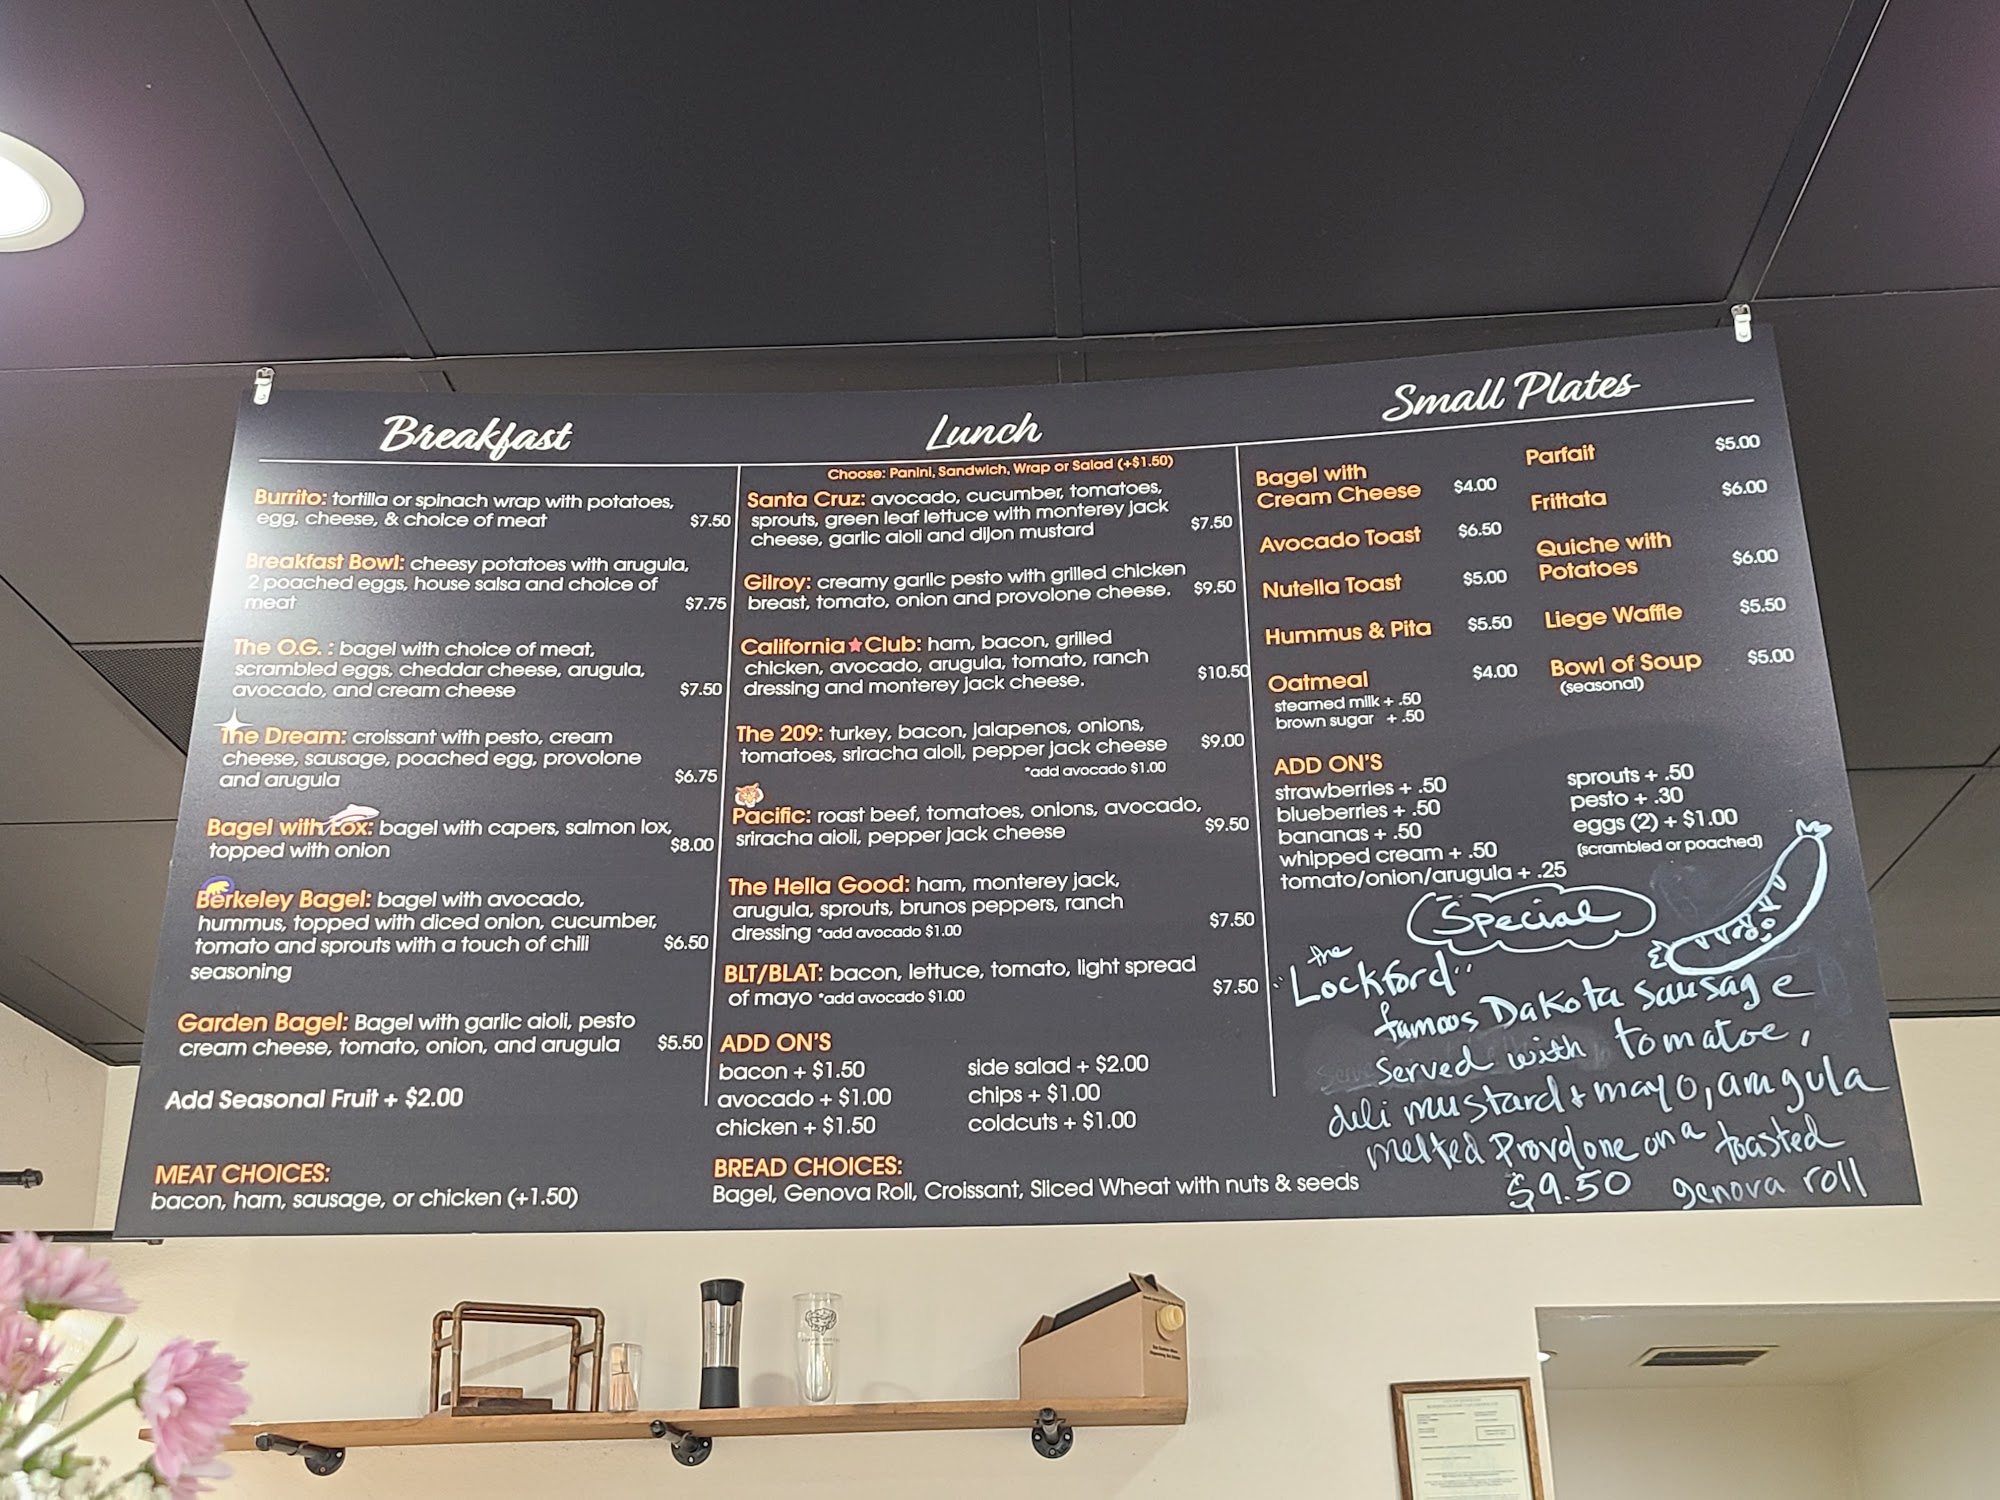 Breakfast
Burrito: tortilla or spinach wrap with potatoes,
egg, cheese, & choice of meat $7.50
Breakfast Bowl: cheesy potatoes with arugula,
2 poached eggs, house salsa and choice of
meat $7.75
The O.G. : bagel with choice of meat,
scrambled eggs, cheddar cheese, arugula,
avocado, and cream cheese $7.50
The Dream: croissant with pesto, cream
cheese, sausage, poached egg, provolone
and arugula $6.75
Bagel with Lox: bagel with capers, salmon lox,
topped with onion $8.00
Berkeley Bagel: bagel with avocado,
hummus, topped with diced onion, cucumber,
tomato and sprouts with a touch of chili $6.50
seasoning
Garden Bagel: Bagel with garlic aioli, pesto
cream cheese, tomato, onion, and arugula $5.50
Add Seasonal Fruit + $2.00
MEAT CHOICES:
bacon, ham, sausage, or chicken (+1.50)
Lunch
Choose: Panini, Sandwich, Wrap or Salad (+$1.50)
Santa Cruz: avocado, cucumber, tomatoes,
sprouts, green leaf lettuce with monterey jack
cheese, garlic aioli and dijon mustard $7.50
Gilroy: creamy garlic pesto with grilled chicken
breast, tomato, onion and provolone cheese. $9.50
California Club: ham, bacon, grilled
chicken, avocado, arugula, tomato, ranch
dressing and monterey jack cheese. $10.50
The 209: turkey, bacon, jalapenos, onions,
tomatoes, sriracha aioli, pepper jack cheese $9.00
*add avocado $1.00
Pacific: roast beef, tomatoes, onions, avocado,
sriracha aioli, pepper jack cheese $9.50
The Hella Good: ham, monterey jack,
arugula, sprouts, brunos peppers, ranch
dressing *add avocado $1.00 $7.50
BLT/BLAT: bacon, lettuce, tomato, light spread
of mayo *add avocado $1.00 $7.50
ADD ON'S
bacon + $1.50
avocado + $1.00
chicken + $1.50
side salad + $2.00
chips + $1.00
coldcuts + $1.00
BREAD CHOICES:
Bagel, Genova Roll, Croissant, Sliced Wheat with nuts & seeds
Small Plates
Bagel with
Cream Cheese $4.00
Avocado Toast $6.50
Nutella Toast $5.00
Hummus & Pita $5.50
Oatmeal $4.00
steamed milk + .50
brown sugar + .50
Parfait $5.00
Frittata $6.00
Quiche with
Potatoes $6.00
Liege Waffle $5.50
Bowl of Soup $5.00
(seasonal)
ADD ON'S
strawberries + .50
blueberries + .50
bananas + .50
whipped cream + .50
tomato/onion/arugula + .25
sprouts + .50
pesto + .30
eggs (2) + $1.00
(scrambled or poached)
Special
the
"Lockford"
famous Dakota sausage
served with tomatoe,
deli mustard + mayo, arugula
melted Provolone on a toasted
$9.50 genova roll